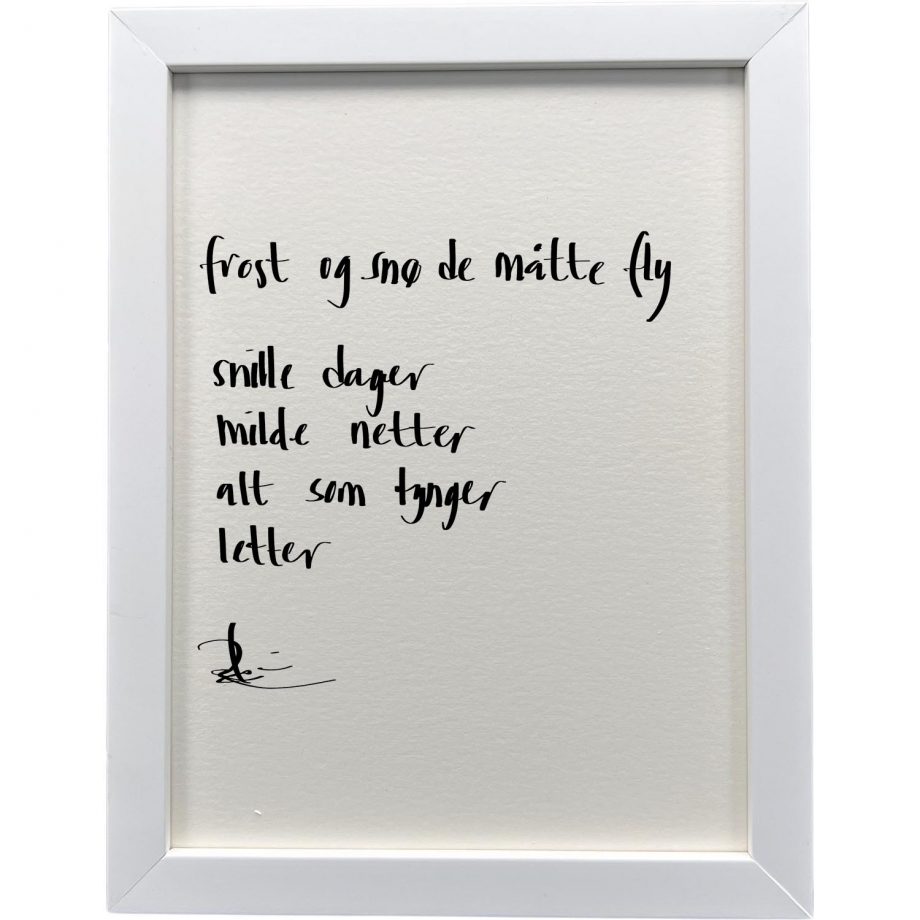 frost og snø de måtte fly
snille dager
milde netter
alt som tynger
letter